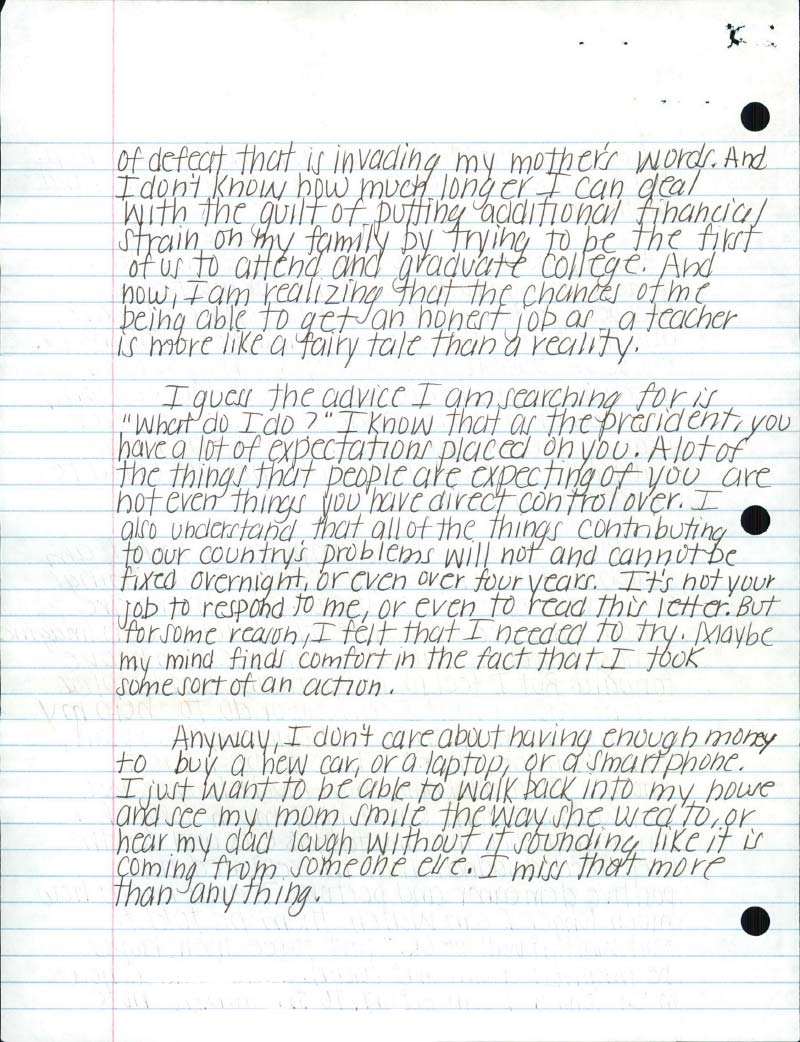 of defeat that is invading my mother's words. And
I don't know how much longer I can deal
with the guilt of putting additional financial
strain on my family by trying to be the first
of us to attend and graduate college. And
now, I am realizing that the chances of me
being able to get an honest job as a teacher
is more like a fairy tale than a reality.
I guess the advice I am searching for is
"What do I do?" I know that as the president, you
have a lot of expectations placed on you. A lot of
the things that people are expecting of you are
not even things you have direct control over. I
also understand that all of the things contributing
to our country's problems will not and cannot be
fixed overnight, or even over four years. It's not your
job to respond to me, or even to read this letter. But
for some reason, I felt that I needed to try. Maybe
my mind finds comfort in the fact that I took
some sort of an action.
Anyway, I don't care about having enough money
to buy a new car, or a laptop, or a smartphone.
I just want to be able to walk back into my house
and see my mom smile the way she used to, or
hear my dad laugh without it sounding like it is
coming from someone else. I miss that more
than anything.